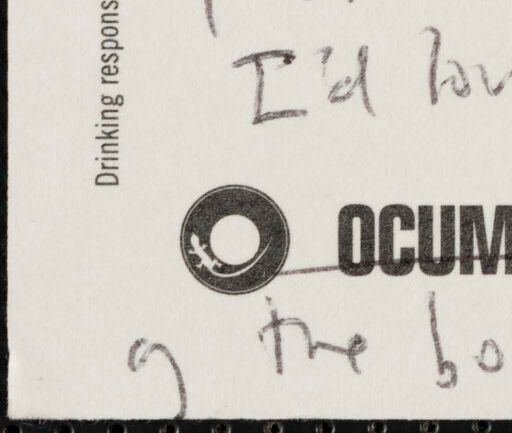 Drinking respons
I'd lov
OCUM
g the bo